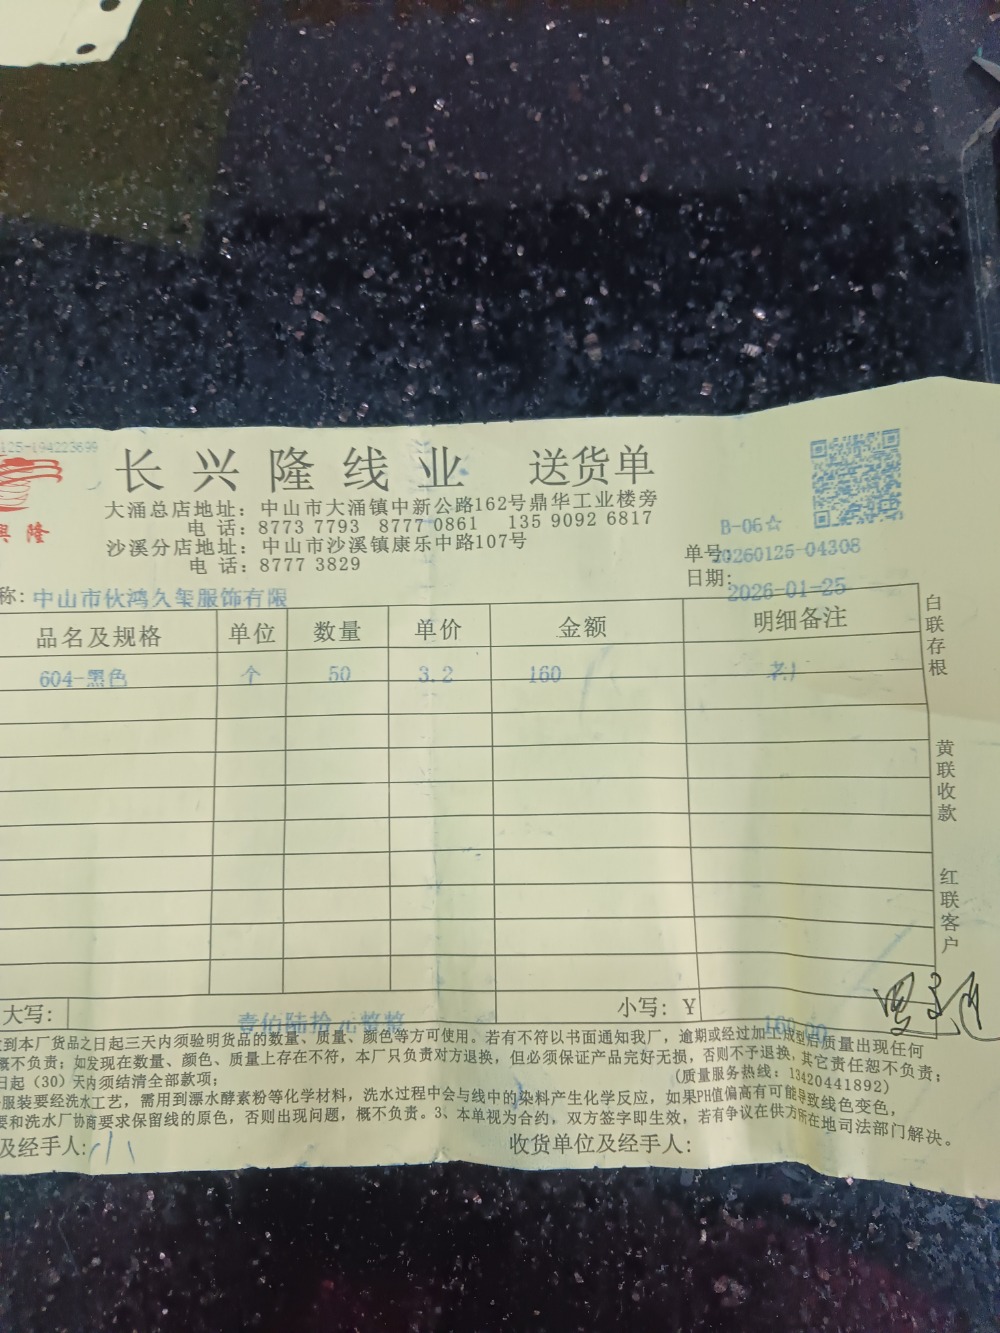 125-194223699
长兴隆线业 送货单
大涌总店地址：中山市大涌镇中新公路162号鼎华工业楼旁
电 话：8773 7793 8777 0861 135 9092 6817
沙溪分店地址：中山市沙溪镇康乐中路107号
电 话：8777 3829
興 隆
B-06☆
单号：20260125-04308
日期：2026-01-25
称：中山市伙鸿久玺服饰有限
品名及规格 单位 数量 单价 金额 明细备注
604-黑色 个 50 3.2 160
白联存根
黄联收款
红联客户
大写：壹佰陆拾元整整 小写：￥160.00
到本厂货品之日起三天内须验明货品的数量、质量、颜色等方可使用。若有不符以书面通知我厂，逾期或经过加工成型后质量出现任何
概不负责；如发现在数量、颜色、质量上存在不符，本厂只负责对方退换，但必须保证产品完好无损，否则不予退换，其它责任恕不负责；
日起（30）天内须结清全部款项； (质量服务热线：13420441892)
服装要经洗水工艺，需用到漂水酵素粉等化学材料，洗水过程中会与线中的染料产生化学反应，如果PH值偏高有可能导致线色变色，
要和洗水厂协商要求保留线的原色，否则出现问题，概不负责。3、本单视为合约，双方签字即生效，若有争议在供方所在地司法部门解决。
及经手人： 收货单位及经手人：